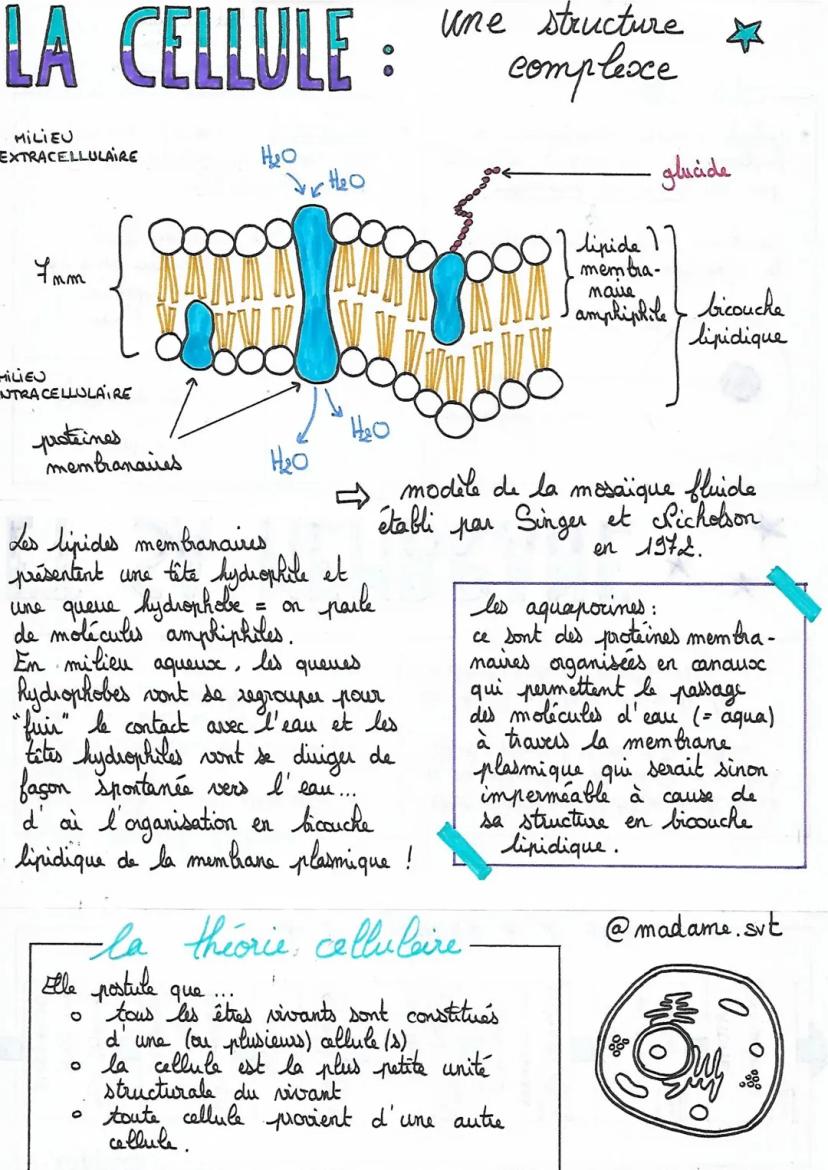 LA CELLULE :
une structure
complexe
MILIEU
EXTRACELLULAIRE
H2O
H2O
glucide
7 nm
lipide
membra-
naire
amphiphile
bicouche
lipidique
MILIEU
INTRACELLULAIRE
protéines
membranaires
H2O
H2O
⇒ modèle de la mosaïque fluide
établi par Singer et Nicholson
en 1972.
Les lipides membranaires
présentent une tête hydrophile et
une queue hydrophobe = on parle
de molécules amphiphiles.
En milieu aqueux, les queues
hydrophobes vont se regrouper pour
"fuir" le contact avec l'eau et les
têtes hydrophiles vont se diriger de
façon spontanée vers l'eau...
d'où l'organisation en bicouche
lipidique de la membrane plasmique !
les aquaporines :
ce sont des protéines membra-
naires organisées en canaux
qui permettent le passage
des molécules d'eau (= aqua)
à travers la membrane
plasmique qui serait sinon
imperméable à cause de
sa structure en bicouche
lipidique.
la théorie cellulaire
Elle postule que ...
o tous les êtres vivants sont constitués
d'une (ou plusieurs) cellule(s)
o la cellule est la plus petite unité
structurale du vivant
o toute cellule provient d'une autre
cellule.
@madame.svt